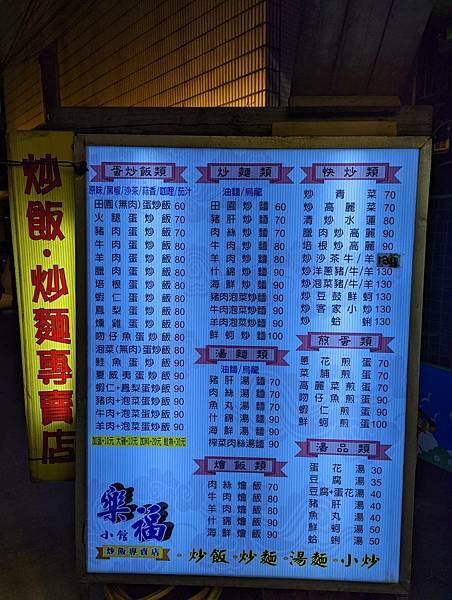 炒飯·炒麵專賣店
蛋炒飯類
原味/黑椒/沙茶/蒜香/咖哩/茄汁
田園(無肉)蛋炒飯 60
火腿蛋炒飯 70
豬肉蛋炒飯 80
牛肉蛋炒飯 80
羊肉蛋炒飯 80
臘肉蛋炒飯 80
培根蛋炒飯 80
蝦仁蛋炒飯 80
鳳梨蛋炒飯 80
燻雞蛋炒飯 80
吻仔魚蛋炒飯 80
泡菜(無肉)蛋炒飯 80
鮭魚蛋炒飯 90
夏威夷蛋炒飯 90
蝦仁+鳳梨蛋炒飯 90
豬肉+泡菜蛋炒飯 90
牛肉+泡菜蛋炒飯 90
羊肉+泡菜蛋炒飯 90
加蛋+10元 大碗+10元 加料+20元 鮭魚+30元
樂福
小館
炒飯專賣店
炒麵類
油麵/烏龍
田園炒麵 60
豬肝炒麵 70
肉絲炒麵 70
牛肉炒麵 80
羊肉炒麵 80
什錦炒麵 90
海鮮炒麵 90
豬肉泡菜炒麵 90
牛肉泡菜炒麵 90
羊肉泡菜炒麵 90
鮮蚵炒麵 100
湯麵類
油麵/烏龍
豬肝湯麵 70
肉絲湯麵 70
魚丸湯麵 70
什錦湯麵 90
海鮮湯麵 90
榨菜肉絲湯麵 90
燴飯類
肉絲燴飯 70
豬肉燴飯 80
牛肉燴飯 80
羊肉燴飯 80
什錦燴飯 90
海鮮燴飯 90
快炒類
炒青菜 70
炒高麗菜 70
清炒水蓮 80
臘肉炒高麗 90
培根炒高麗 90
炒沙茶牛/羊
炒洋蔥豬/牛/羊 130
炒泡菜豬/牛/羊 130
炒豆鼓鮮蚵 130
炒客家小炒 130
炒蛤蜊 130
煎蛋類
蔥花煎蛋 70
菜脯煎蛋 70
高麗菜煎蛋 70
吻仔魚煎蛋 90
蝦仁煎蛋 90
鮮蚵煎蛋 90
湯品類
蛋花湯 30
豆腐湯 35
豆腐+蛋花湯 40
豬肝湯 40
魚丸湯 40
鮮蚵湯 50
蛤蜊湯 50
·炒飯·炒麵·湯麵·小炒